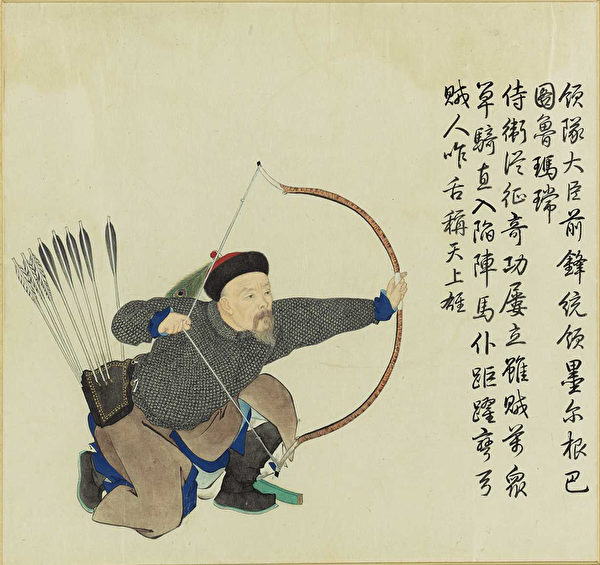 領隊大臣前鋒統領墨尔根巴
圖魯瑪瑺
侍衛從征奇功屢立雖賊萬眾
單騎直入陷陣馬仆距躍彎弓
賊人咋舌稱天上雄